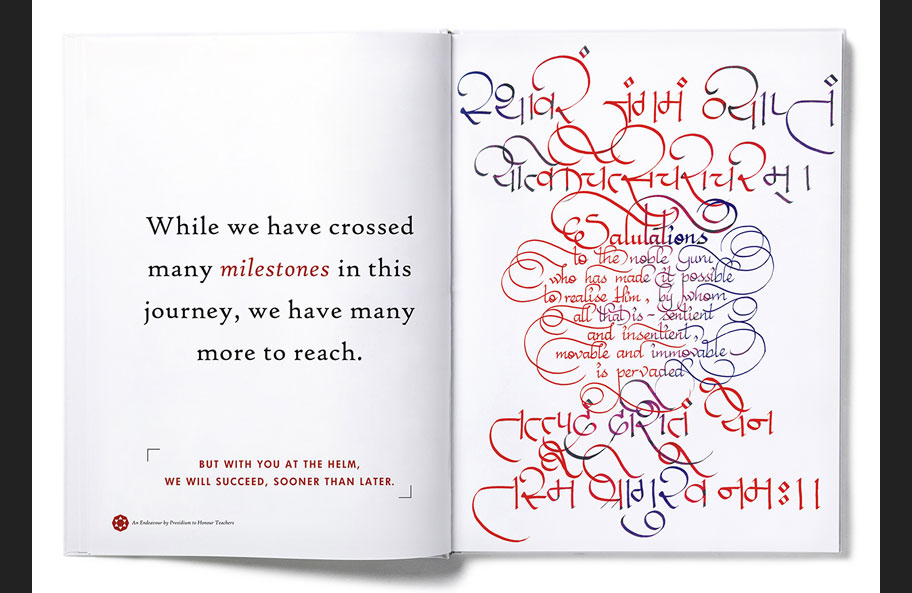 While we have crossed
many milestones in this
journey, we have many
more to reach.
BUT WITH YOU AT THE HELM,
WE WILL SUCCEED, SOONER THAN LATER.
An Endeavour by Presidium to Honour Teachers
स्थावरं जंगमं व्याप्तं
यत्किंचित्सचराचरम्।
Salutations
to the noble Guru
who has made it possible
to realise Him, by whom
all that is - sentient
and insentient,
movable and immovable
is pervaded
तत्पदं दर्शितं येन
तस्मै श्रीगुरवे नमः।।